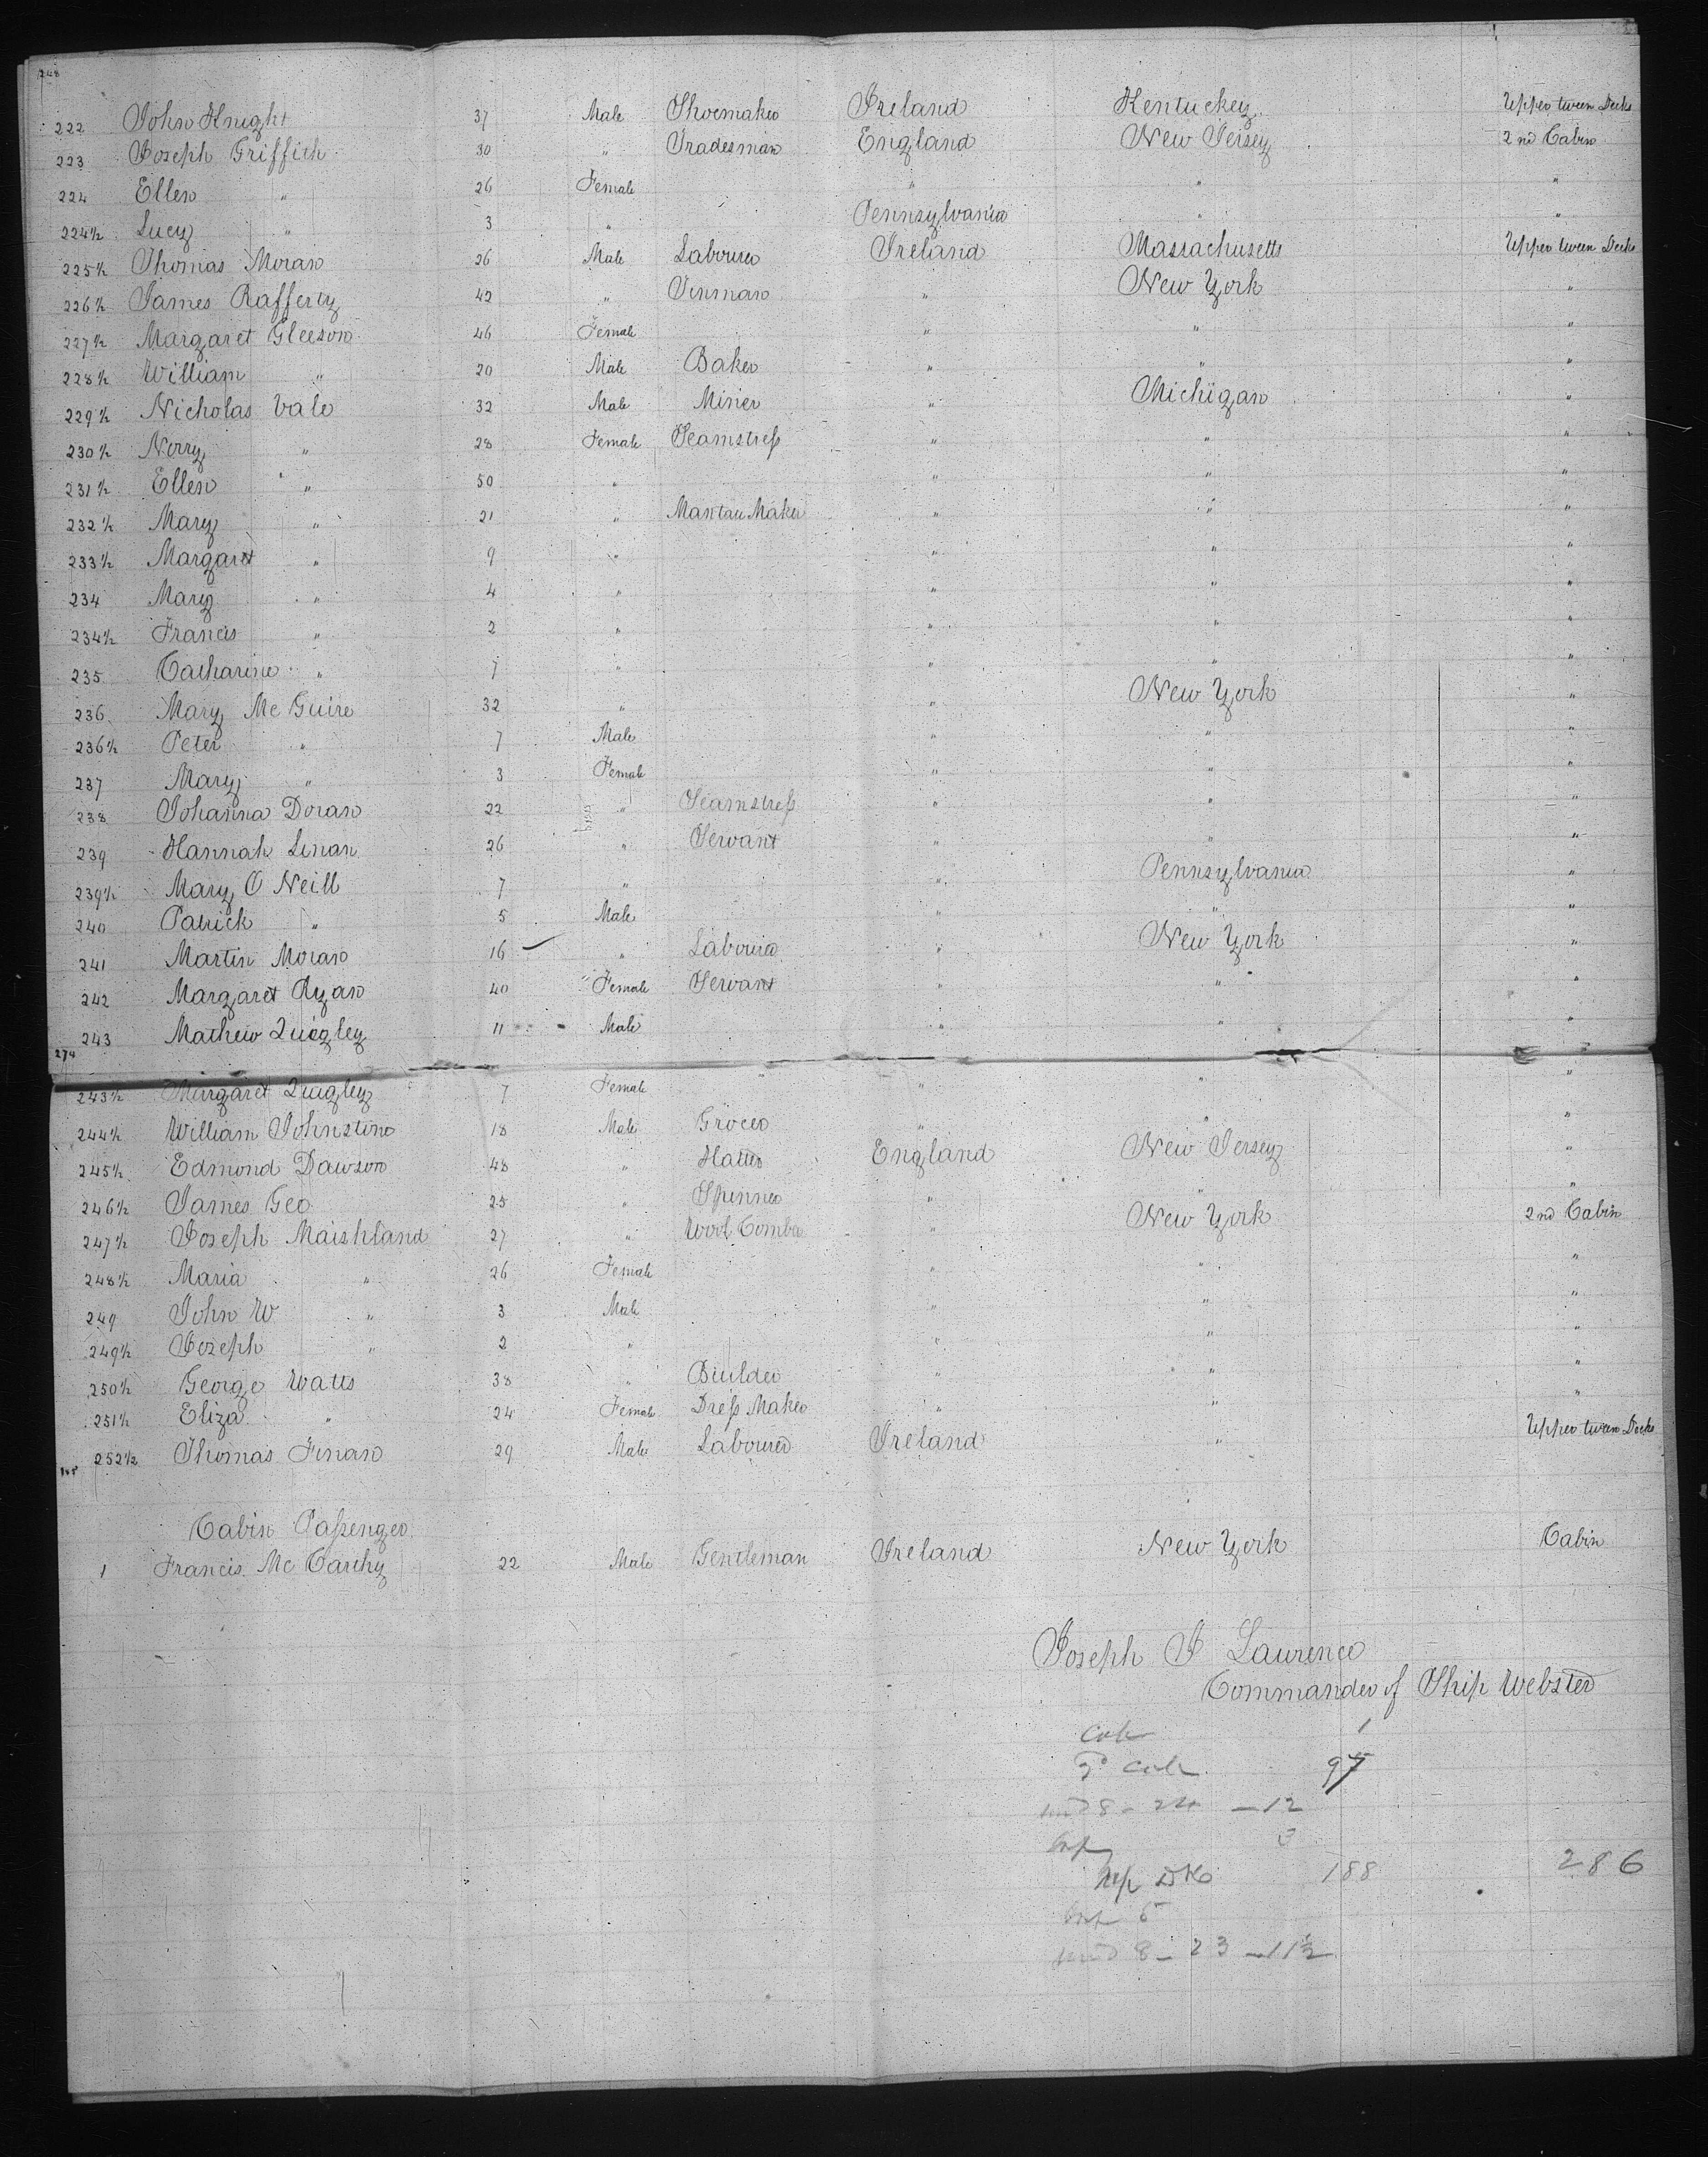 248
222 John Knight 37 Male Shoemaker Ireland Kentuckey Upper tween Decks
223 Joseph Griffith 30 " Tradesman England New Jersey 2nd Cabin
224 Ellen " 26 Female " " "
224½ Lucy " 3 " Pennsylvania " "
225½ Thomas Moran 26 Male Labourer Ireland Massachusetts Upper tween Decks
226½ James Rafferty 42 " Tinman " New York "
227½ Margaret Gleeson 46 Female " " "
228½ William " 20 Male Baker " " "
229½ Nicholas Vale 32 Male Miner " Michigan "
230½ Norry " 28 Female Seamstress " " "
231½ Ellen " 50 " " " "
232½ Mary " 21 " Mantau Maker " " "
233½ Margaret " 9 " " " "
234 Mary " 4 " " " "
234½ Francis " 2 " " " "
235 Catharine " 7 " " " "
236 Mary Mc Guire 32 " " New York "
236½ Peter " 7 Male " " "
237 Mary " 3 Female " " "
238 Johanna Doran 22 " Seamstress " " "
239 Hannah Linan 26 " Servant " " "
239½ Mary O Neill 7 " " Pennsylvania "
240 Patrick " 5 Male " " "
241 Martin Moran 16 " Labourer " New York "
242 Margaret Ryan 40 Female Servant " " "
243 Mathew Quigley 11 Male " " "
274
243½ Margaret Quigley 7 Female " " " "
244½ William Johnstone 18 Male Grocer " " "
245½ Edmond Dawson 48 " Hatter England New Jersey "
246½ James Geo 25 " Spinner " " "
247½ Joseph Maishland 27 " Wool Comber " New York 2nd Cabin
248½ Maria " 26 Female " " "
249 John W " 3 Male " " "
249½ Joseph " 2 " " " "
250½ George Watts 38 " Builder " " "
251½ Eliza " 24 Female Dress Maker " " "
252½ Thomas Finan 29 Male Labourer Ireland " Upper tween Decks
Cabin Passenger
1 Francis Mc Carthy 22 Male Gentleman Ireland New York Cabin
Joseph J Laurence
Commander of Ship Webster
1
97
8 - 24 - 12
3
188 286
5
8 - 23 - 11½